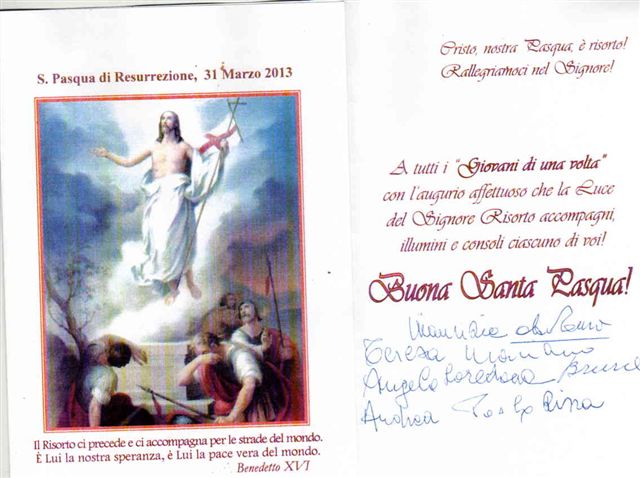 S. Pasqua di Resurrezione, 31 Marzo 2013
Il Risorto ci precede e ci accompagna per le strade del mondo.
È Lui la nostra speranza, è Lui la pace vera del mondo.
Benedetto XVI
Cristo, nostra Pasqua, è risorto!
Rallegriamoci nel Signore!
A tutti i "Giovani di una volta"
con l'augurio affettuoso che la Luce
del Signore Risorto accompagni,
illumini e consoli ciascuno di voi!
Buona Santa Pasqua!
Teresa
Angela Loredana
Andrea